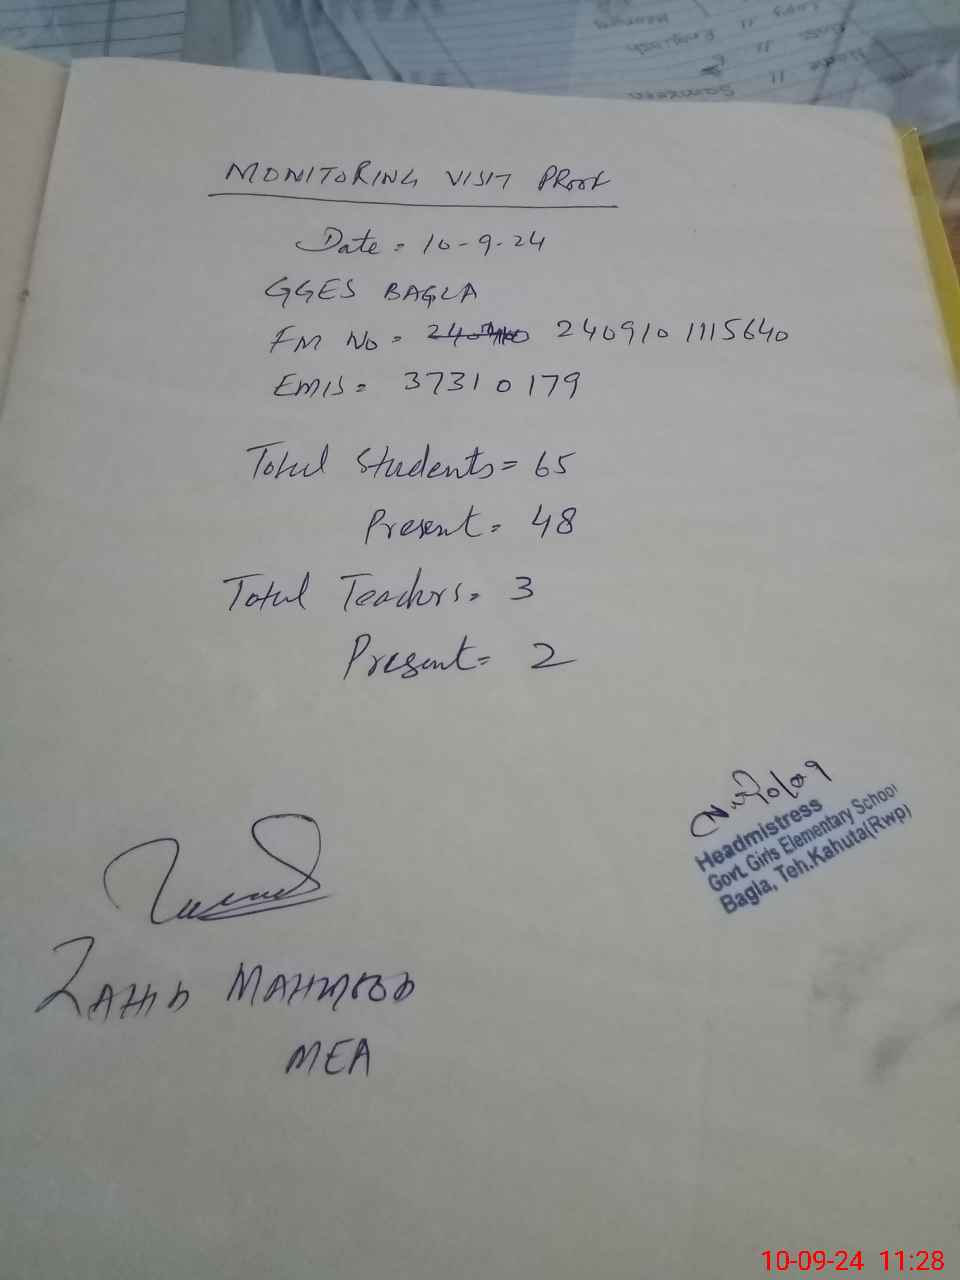 MONITORING VISIT PROOF
Date = 10-9-24
GGES BAGLA
FM No = 240910 1115640
EMIS = 37310179
Total Students = 65
Present = 48
Total Teachers = 3
Present = 2
Headmistress
Govt. Girls Elementary School
Bagla, Teh.Kahuta(Rwp)
ZAHID MAHMOOD
MEA
10-09-24 11:28